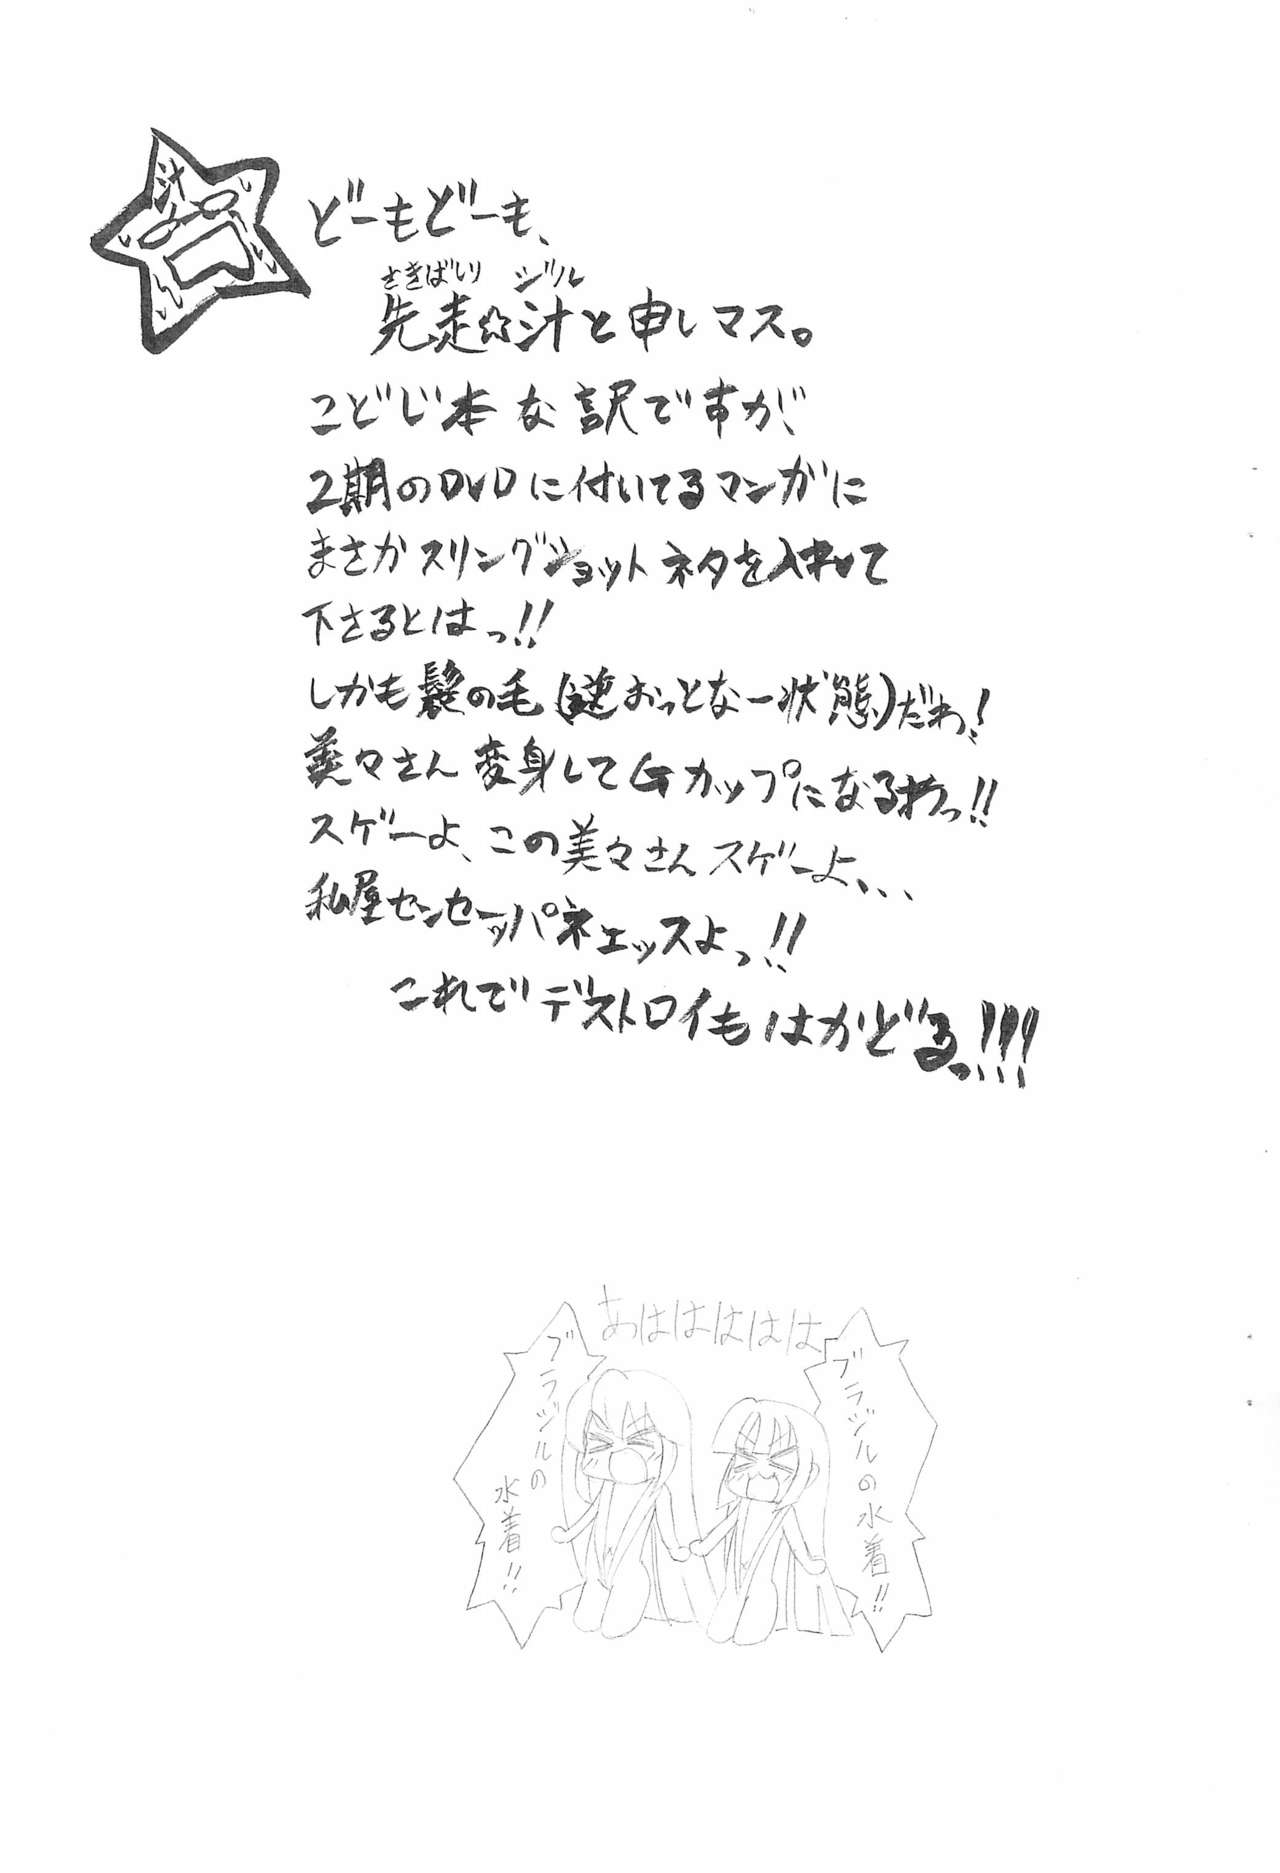 汁
どーもどーも、
さきばしり ジル
先走☆汁と申しマス。
こどじ本な訳ですが、
2期のDVDに付いてるマンガに
まさかスリングショットネタを入れて
下さるとはっ!!
しかも髪の毛(逆おっとなー状態)だわっ!
美々さん変身してGカップになるわっ!!
スゲーよ、この美々さんスゲーよ、、、
私屋センセーッパネェッスよっ!!
これでデストロイもはかどるっ!!!
あはははははは
ブラジルの
水着!!
ブラジルの水着!!